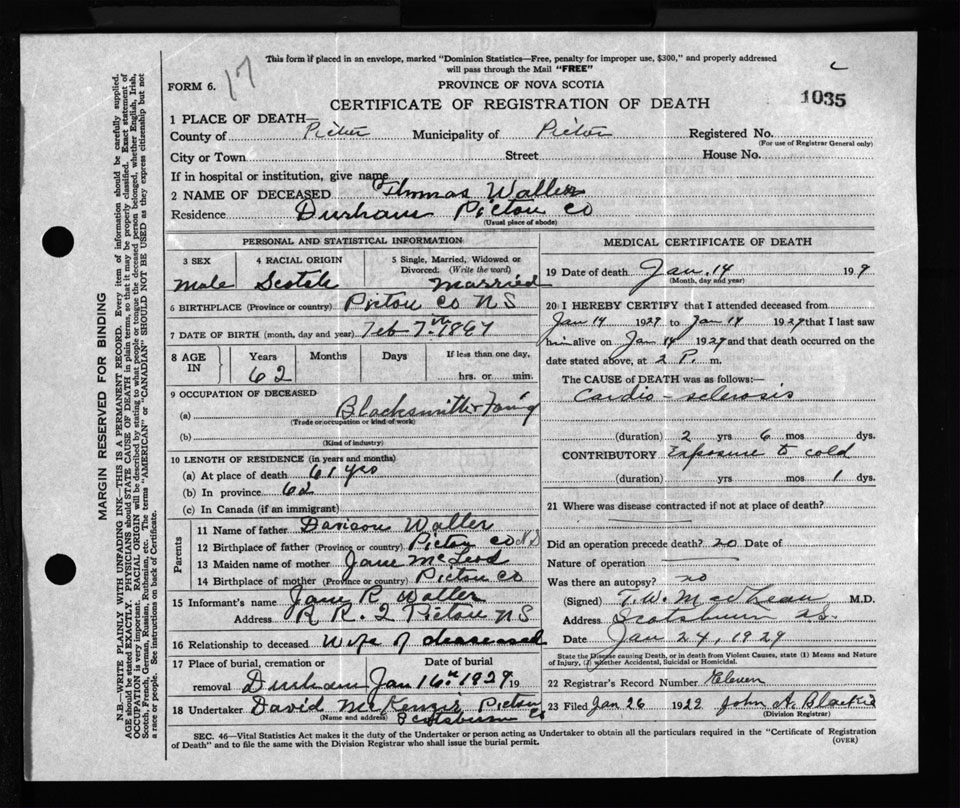 This form if placed in an envelope, marked "Dominion Statistics—Free, penalty for improper use, $300," and properly addressed
will pass through the Mail "FREE"
FORM 6. 17
PROVINCE OF NOVA SCOTIA
CERTIFICATE OF REGISTRATION OF DEATH
1035
1 PLACE OF DEATH—
County of Pictou Municipality of Pictou Registered No.
(For use of Registrar General only)
City or Town Street House No.
If in hospital or institution, give name
2 NAME OF DECEASED Thomas Waller
Residence Durham Pictou Co
(Usual place of abode)
PERSONAL AND STATISTICAL INFORMATION
3 SEX 4 RACIAL ORIGIN 5 Single, Married, Widowed or
Divorced. (Write the word)
male Scotch married
6 BIRTHPLACE (Province or Country) Pictou Co NS
7 DATE OF BIRTH (month, day and year) Feb 7th
8 AGE IN Years Months Days If less than one day,
62 hrs. or min.
9 OCCUPATION OF DECEASED
(a) Blacksmith
(Trade or occupation or kind of work)
(b)
(Kind of industry)
10 LENGTH OF RESIDENCE (in years and months)
(a) At place of death 61 yrs
(b) In province 62
(c) In Canada (if an immigrant)
Parents
11 Name of father Davison Waller
12 Birthplace of father (Province or country) Pictou Co NS
13 Maiden name of mother Jane McLeod
14 Birthplace of mother (Province or country) Pictou Co
15 Informant's name Jane R. Waller
Address R R. 2 Pictou NS
16 Relationship to deceased Wife of deceased
17 Place of burial, cremation or Date of burial
removal Durham Jan 16th 1929 19
18 Undertaker David McKenzie Pictou
(Name and address) Scotsburn Co
MEDICAL CERTIFICATE OF DEATH
19 Date of death Jan. 14 19 9
(Month, day and year)
20 I HEREBY CERTIFY that I attended deceased from
Jan 14 1929 to Jan 14 1929 that I last saw
him alive on Jan 14 1929 and that death occurred on the
date stated above, at 2 P. m.
The CAUSE OF DEATH was as follows:—
Cardio-sclerosis
(duration) 2 yrs 6 mos dys.
CONTRIBUTORY Exposure to cold
(duration) yrs mos 1 dys.
21 Where was disease contracted if not at place of death?
Did an operation precede death? no Date of
Nature of operation
Was there an autopsy? no
(Signed) T. W. MacLean M.D.
Address Scotsburn NS.
Date Jan 24, 1929
State the Disease causing Death, or in death from Violent Causes, state (1) Means and Nature
of Injury, (2) whether Accidental, Suicidal or Homicidal.
22 Registrar's Record Number Eleven
23 Filed Jan 26 1922 John A. Blackie
(Division Registrar)
SEC. 46—Vital Statistics Act makes it the duty of the Undertaker or person acting as Undertaker to obtain all the particulars required in the "Certificate of Registration
of Death" and to file the same with the Division Registrar who shall issue the burial permit.
(OVER)
MARGIN RESERVED FOR BINDING
N.B.—WRITE PLAINLY WITH UNFADING INK—THIS IS A PERMANENT RECORD. Every item of information should be carefully supplied.
AGE should be stated EXACTLY. PHYSICIANS should STATE CAUSE OF DEATH in plain terms, so that it may be properly classified. Exact statement of
OCCUPATION is very important. RACIAL ORIGIN will be described by stating to what people or tongue the deceased person belonged, whether English, Irish,
Scotch, French, German, Russian, Ruthenian, etc. The terms "AMERICAN" or "CANADIAN" SHOULD NOT BE USED as they express citizenship but not
a race or people. See instructions on back of Certificate.